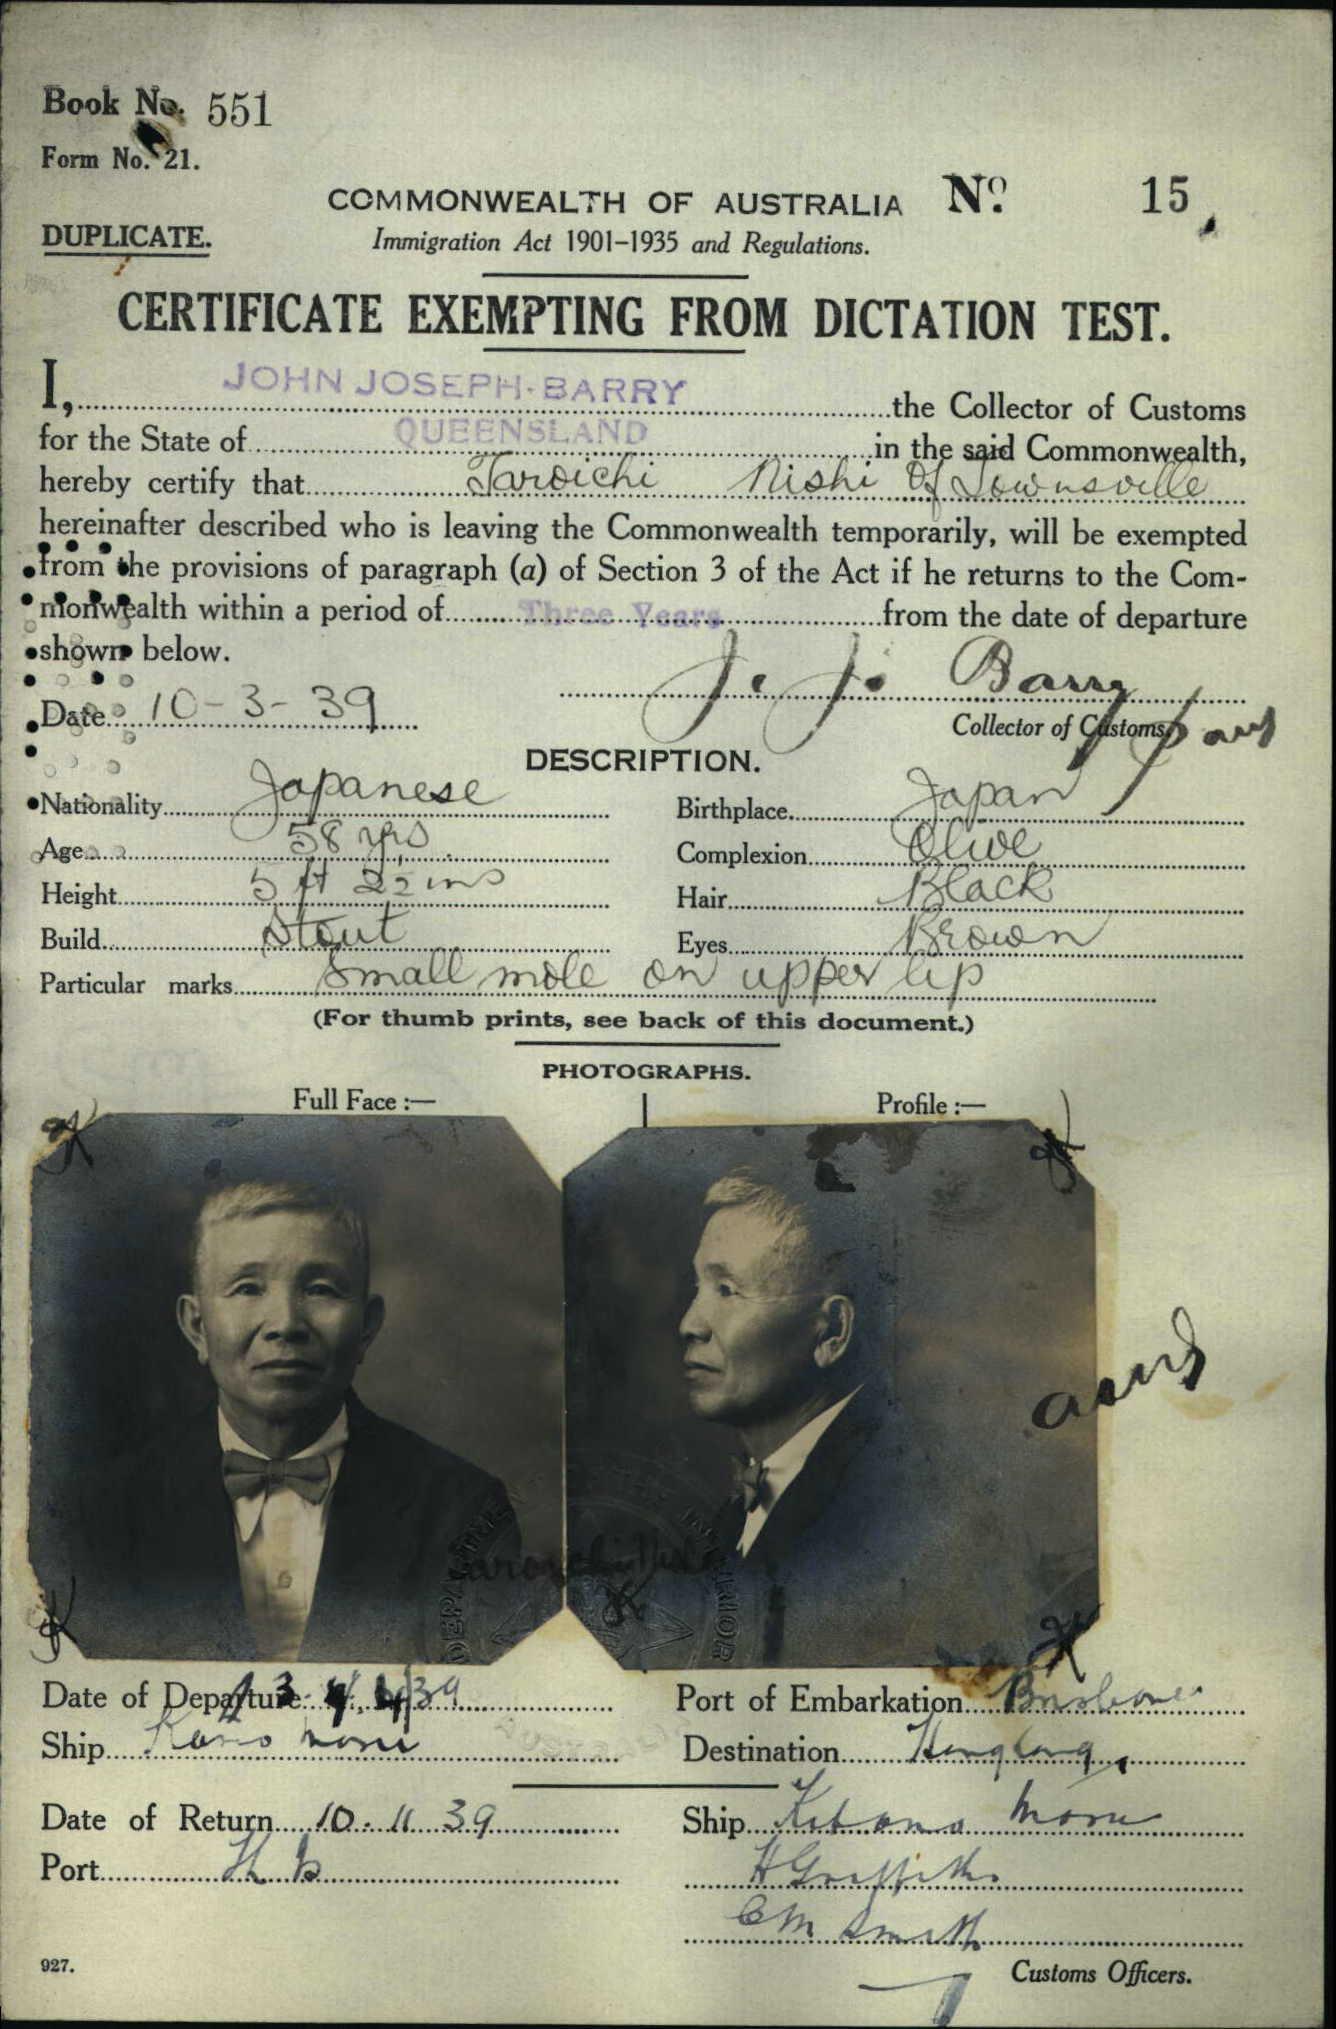 Book No. 551
Form No. 21.
COMMONWEALTH OF AUSTRALIA No. 15
DUPLICATE.
Immigration Act 1901-1935 and Regulations.
CERTIFICATE EXEMPTING FROM DICTATION TEST.
I, JOHN JOSEPH BARRY the Collector of Customs
for the State of QUEENSLAND in the said Commonwealth,
hereby certify that Taroichi Nishi Of Townsville
hereinafter described who is leaving the Commonwealth temporarily, will be exempted
from the provisions of paragraph (a) of Section 3 of the Act if he returns to the Com-
monwealth within a period of Three Years from the date of departure
shown below.
J. J. Barry
Date 10-3-39
Collector of Customs.
DESCRIPTION.
Nationality Japanese Birthplace Japan
Age 58 yrs Complexion Olive
Height 5 ft 2½ ins Hair Black
Build Stout Eyes Brown
Particular marks Small mole on upper lip
(For thumb prints, see back of this document.)
PHOTOGRAPHS.
Full Face :— Profile :—
DEPARTMENT INTERIOR
Date of Departure 39 Port of Embarkation Brisbane
Ship Kamo Maru Destination Hongkong
Date of Return 10. 11 39 Ship Kitano Maru
Port H Griffiths
C M Smith
927.
Customs Officers.